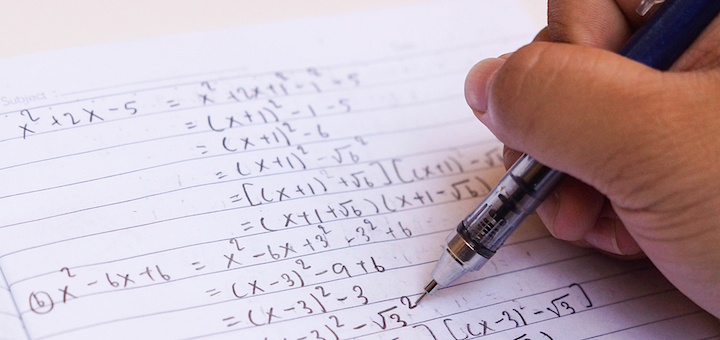 Subject :
x² + 2x - 5 = x² + 2x + 1² - 1² - 5
= (x+1)² - 1 - 5
= (x+1)² - 6
= (x+1)² - √6²
= [(x+1)² + √6] [(x+1)² - √6
= (x+1+√6)(x+1-√6)
(b) x² - 6x + 6 = x² - 6x + 3² - 3² + 6
= (x-3)² - 9 + 6
= (x-3)² - 3
-3)² - √3²
] [(x-3)² - √3]